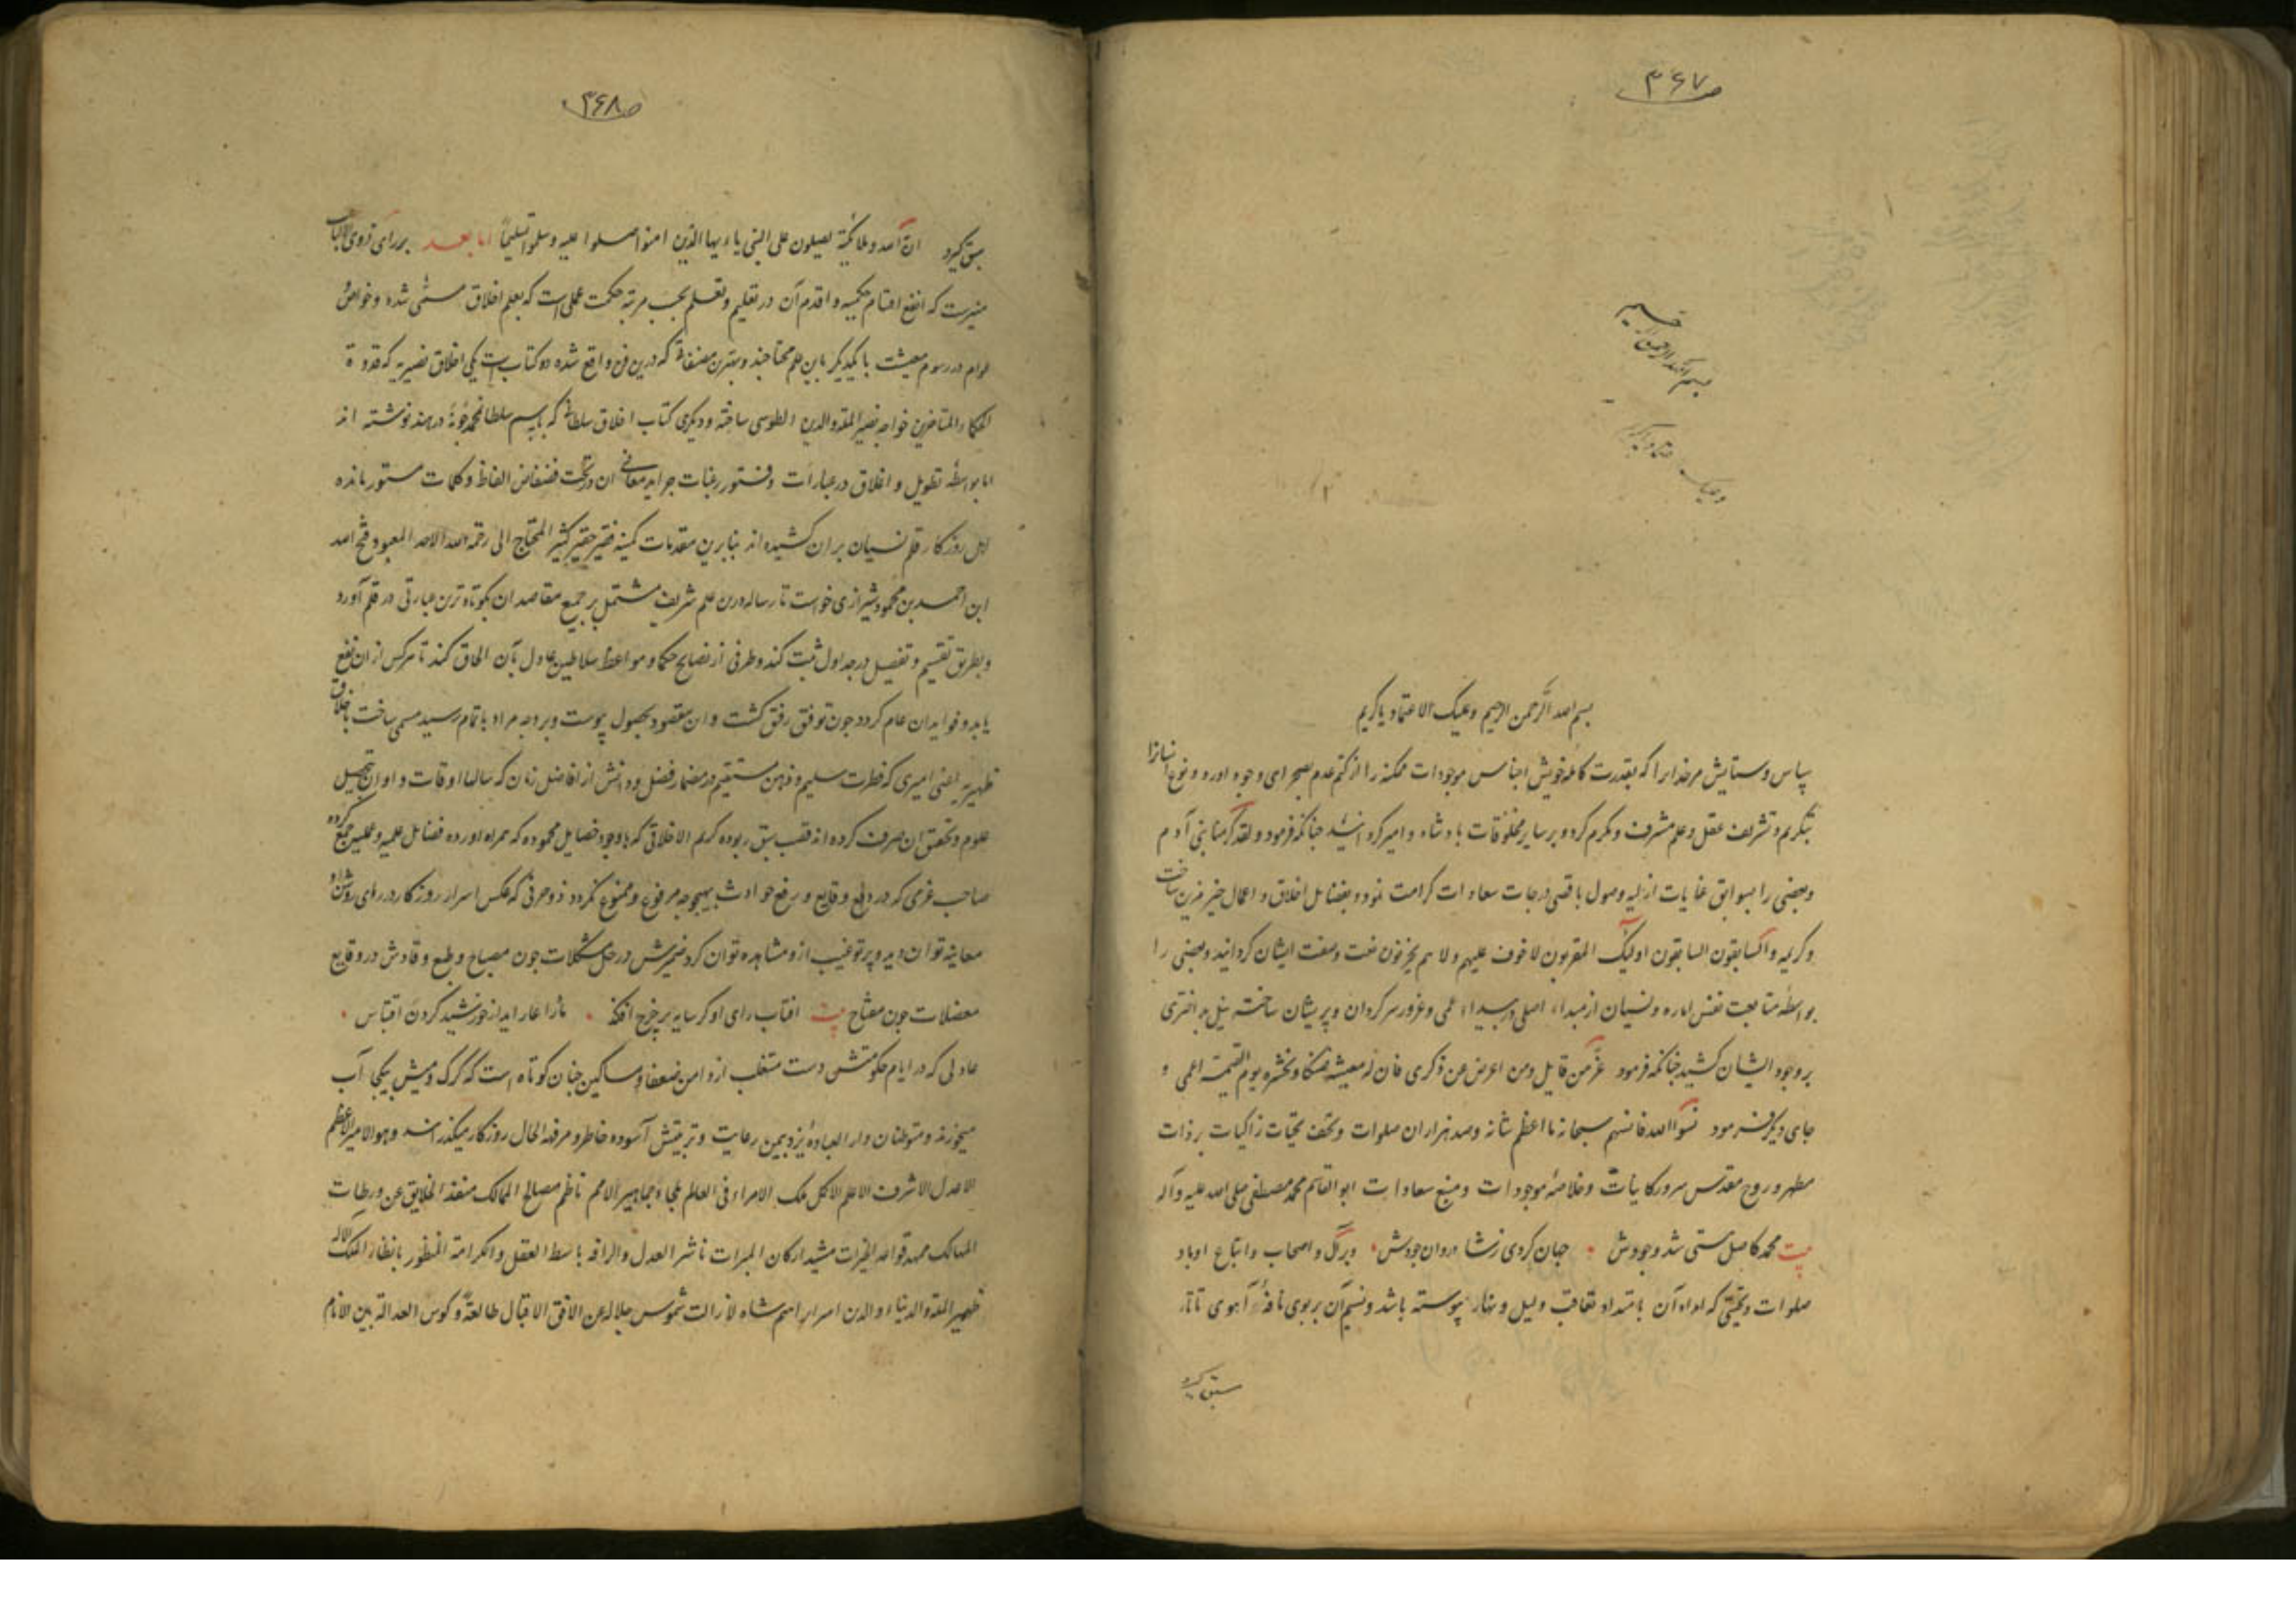 ص ۳۶۷
بسم الله الرحمن
بسم الله الرحمن الرحیم وعلیک الاعتماد یا کریم
سپاس و ستایش مر خدایرا که بقدرت کامله خویش اجناس موجودات ممکنه را از کتم عدم بصحرای وجود اورد و نوع انسانرا
بتکریم و تشریف عقل و علم مشرف و مکرم کرد و بر سایر مخلوقات بادشاه و امیر کردانید جنانکه فرمود ولقد کرمنا بنی آدم
و بعضی را بسوابق عنایات ازلیه وصول باقصی درجات سعادات کرامت نمود و بفضایل اخلاق و اعمال خیر مزین ساخت
و کریمه والسابقون السابقون اولیک المقربون لا خوف علیهم ولا هم یحزنون نعت و صفت ایشان کردانید و بعضی را
بواسطه متابعت نفس اماره و نسیان از مبداء اصلی در بیداء عمی و غرور سرکردان و پریشان ساخته نیل بد اختری
بر وجود ایشان کشید جنانکه فرمود عز من قایل ومن اعرض عن ذکری فان له معیشة ضنکا و نحشره یوم القیمة اعمی و
جای دیکر فرمود نسوا الله فانسیهم سبحانه ما اعظم شانه و صد هزاران صلوات و تحف تحیات زاکیات بر ذات
مطهر و روح مقدس سرور کاینات و خلاصه موجودات و منبع سعادات ابو القاسم محمد مصطفی صلی الله علیه و آله
بیت محمد کاصل هستی شد وجودش جهان کردی ز شادروان جودش و بر آل و اصحاب و اتباع او باد
صلوات و تحیتی که امداد آن بامتداد تعاقب لیل و نهار پیوسته باشد و نسیم آن بر بوی نافه آهوی تاتار
سبق کیرد
ص ۳۶۸
سبق کیرد ان الله وملائکته یصلون علی النبی یا ایها الذین امنوا صلوا علیه وسلموا تسلیما اما بعد بر رای ذوی الالباب
منیرست که انفع اقسام حکمیه و اقدم آن در تعلیم و تعلم بحسب مرتبه حکمت عملی است که بعلم اخلاق مسمی شده و خواص و
عوام در رسوم معیشت با یکدیکر باین علم محتاجند و بهترین مصنفاتی که درین فن واقع شده دو کتاب است یکی اخلاق نصیریه که قدوة
الحکماء المتاخرین خواجه نصیر الملة والدین الطوسی ساخته و دیکری کتاب اخلاق سلطانی که باسم سلطان محمد در هند نوشته اند
اما بواسطه تطویل و اغلاق در عبارات و فتور رغبات جراید معانی ان در تحت فضفاض الفاظ و کلمات مستور مانده
اهل روزکار قلم نسیان بران کشیده اند بنابرین مقدمات کمینه فقیر حقیر کثیر المحتاج الی رحمة الله الاحد المعبود فتح الله
ابن احمد بن محمود شیرازی خواست تا رساله درین علم شریف مشتمل بر جمیع مقاصد ان بکوتاه ترین عبارتی در قلم آورد
و بطریق تقسیم و تفصیل در جداول ثبت کند و طرفی از نصایح حکما و مواعظ سلاطین عادل بآن الحاق کند تا هرکس از ان نفع
یابد و فواید ان عام کردد چون توفیق رفیق کشت و ان مقصود بحصول پیوست و بر وجه مراد باتمام رسید مسمی ساخت باخلاق
ظهیریه یعنی امیری که فطرت سلیم و ذهن مستقیم در مضمار فضل و دانش از افاضل زمان که سالها اوقات و اوان بتحصیل
علوم و تحقیق ان صرف کرده اند قصب سبق ربوده کریم الاخلاقی که باوجود خصایل محموده که همراه اورده فضایل علمیه و عملیه جمع کرده
صاحب عزمی که در دفع وقایع و رفع حوادث بهیچ وجه مرفوع و ممنوع نکردد ذو حزمی که عکس اسرار روزکار در رای روشن او
معاینه توان دید و پرتو غیب ازو مشاهده توان کرد ضمیرش در حل مشکلات چون مصباح و طبع وقادش در وقایع
معضلات چون مفتاح بیت افتاب رای او کر سایه بر چرخ افکند ماه را عار اید از خورشید کردن اقتباس
عادلی که در ایام حکومتش دست متغلب از دامن ضعفا و مساکین جنان کوتاه است که کرک و میش بیکجا آب
میخورند و متوطنان دار العباده یزد بیمن رعایت و تربیتش آسوده خاطر و مرفه الحال روزکار میکذرانند و هو الامیر الاعظم
الاعدل الاشرف الاعلم الاکمل ملک الامراء فی العالم ملجاء جماهیر الامم ناظم مصالح الممالک منقذ الخلایق عن ورطات
المهالک ممهد قواعد الخیرات مشید ارکان المبرات ناشر العدل والرافه باسط العقل والکرامة المنظور بانظار الملک الاله
ظهیر الملة والدنیاء والدین امیر ابراهیم شاه لا زالت شموس جلاله عن الافق الاقبال طالعة و کوس العدالة بین الانام